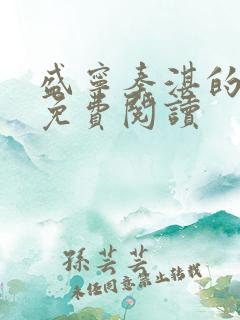 盛寧秦湛的
免費閱讀
孫芸芸
未經同意禁止轉載